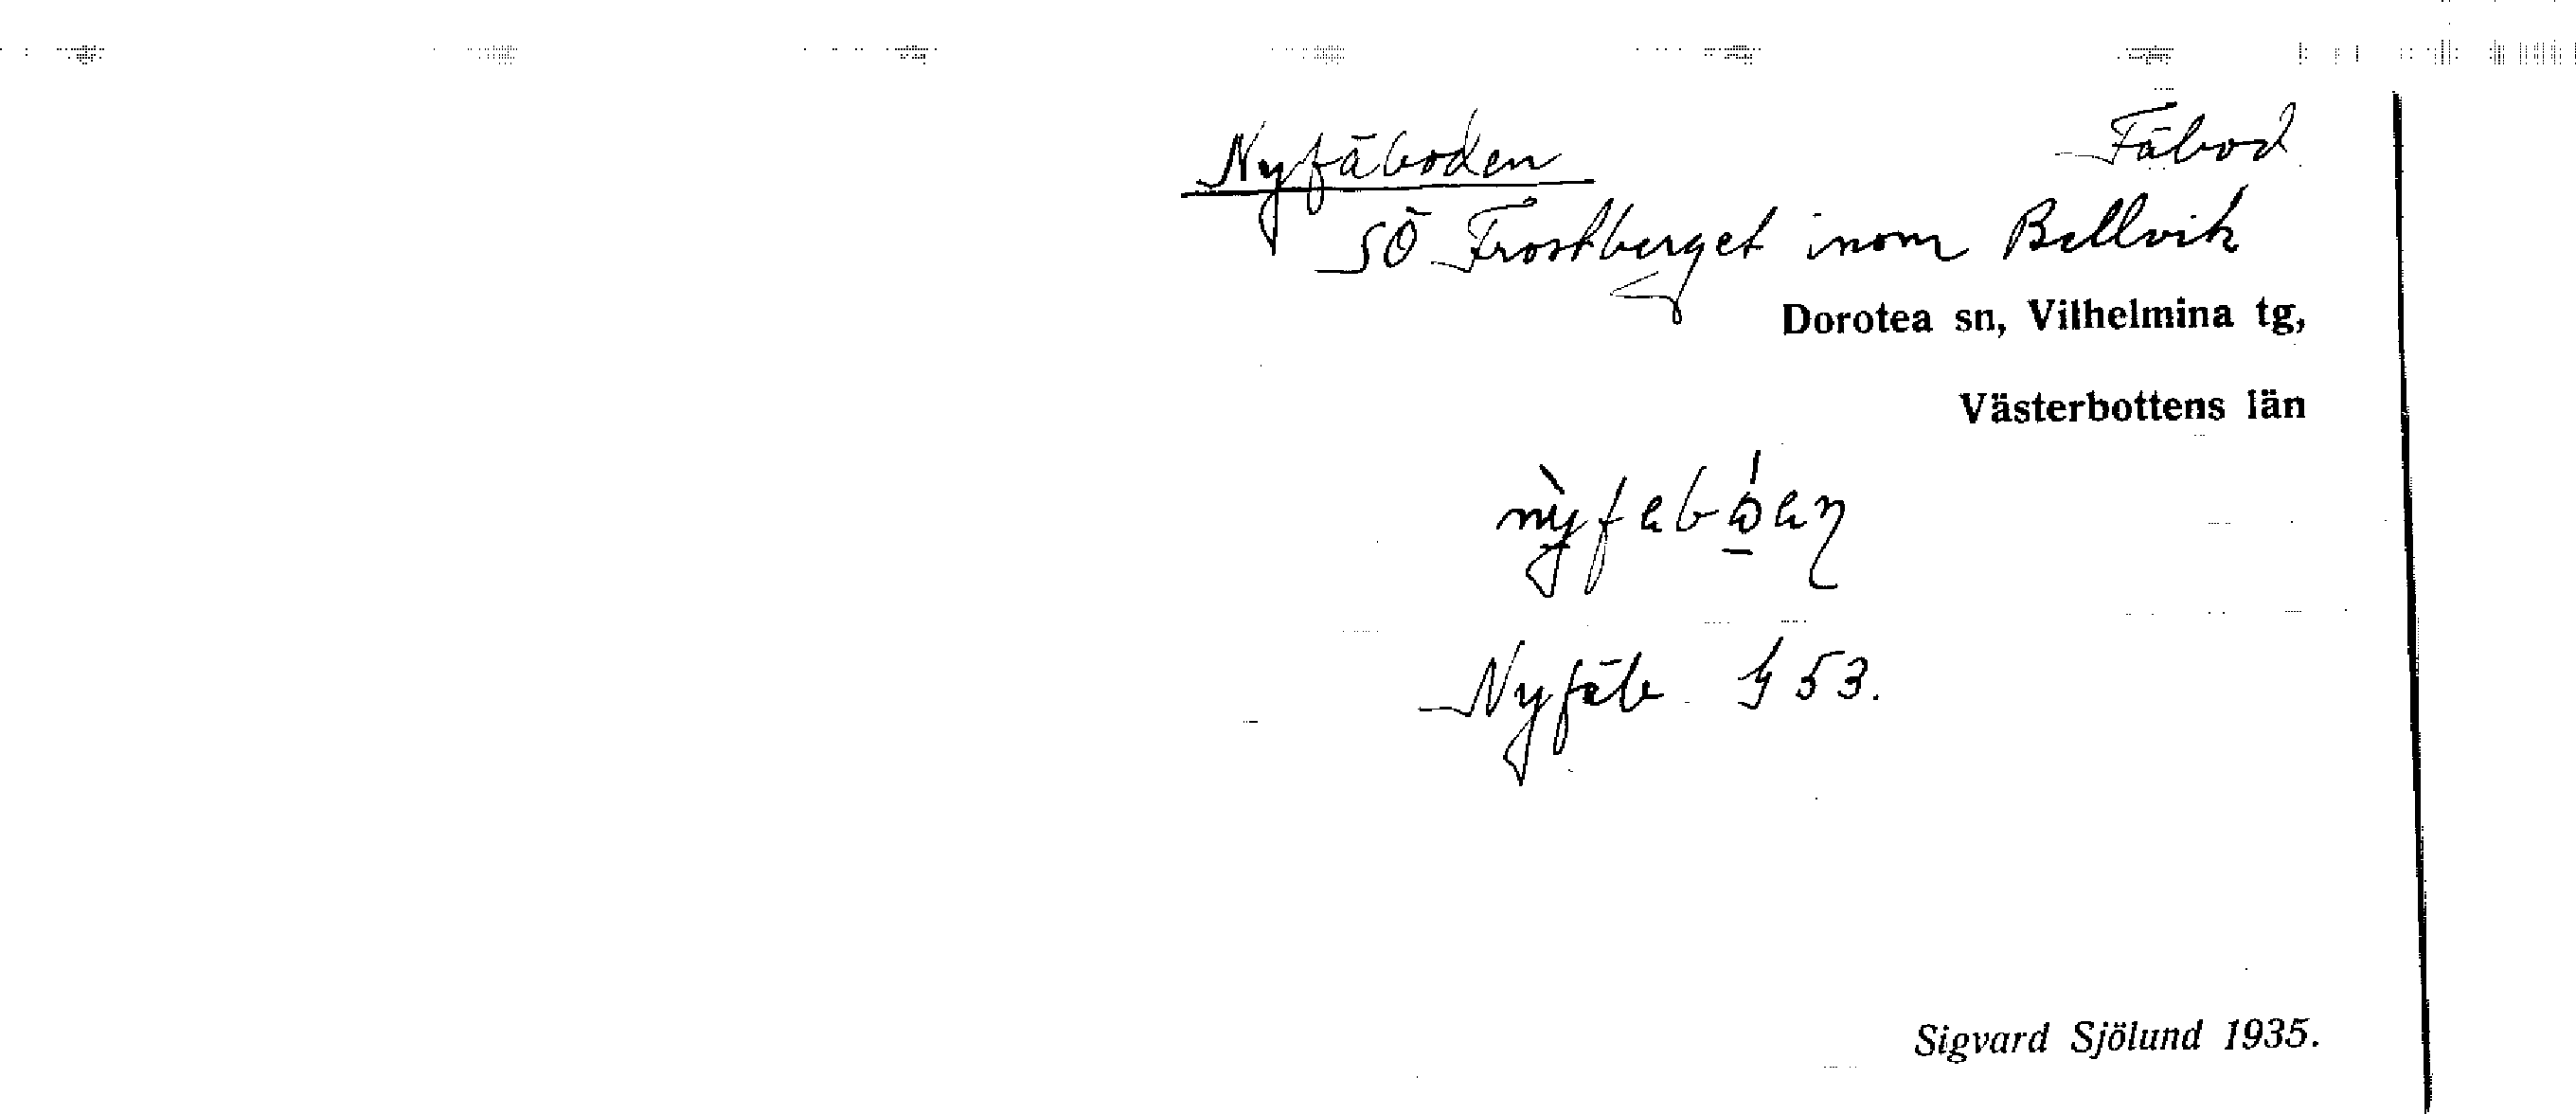 Nyfäboden Fäbod
SÖ Frostberget inom Bellvik
Dorotea sn, Vilhelmina tg,
Västerbottens län
Nyfäb 53.
Sigvard Sjölund 1935.